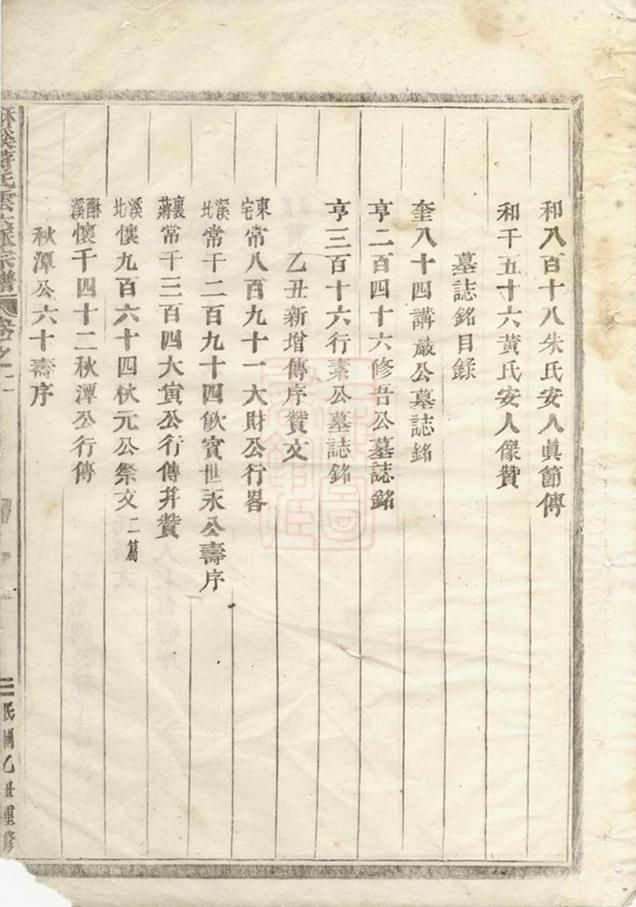 和八百十八朱氏安人眞節傳
和千五十六黃氏安人像贊
墓誌銘目錄
奎八十四講嚴公墓誌銘
亨二百四十六修吾公墓誌銘
亨三百十六行素公墓誌銘
乙丑新增傳序贊文
東宅常八百九十一大財公行畧
溪北常千二百九十四飲賓世永公壽序
裏蔣常千三百四大寅公行傳并贊
溪北懷九百六十四秋元公祭文二篇
酥溪懷千四十二秋潭公行傳
秋潭公六十壽序
酥溪蔣氏雲 宗譜 卷之
民國乙丑重修